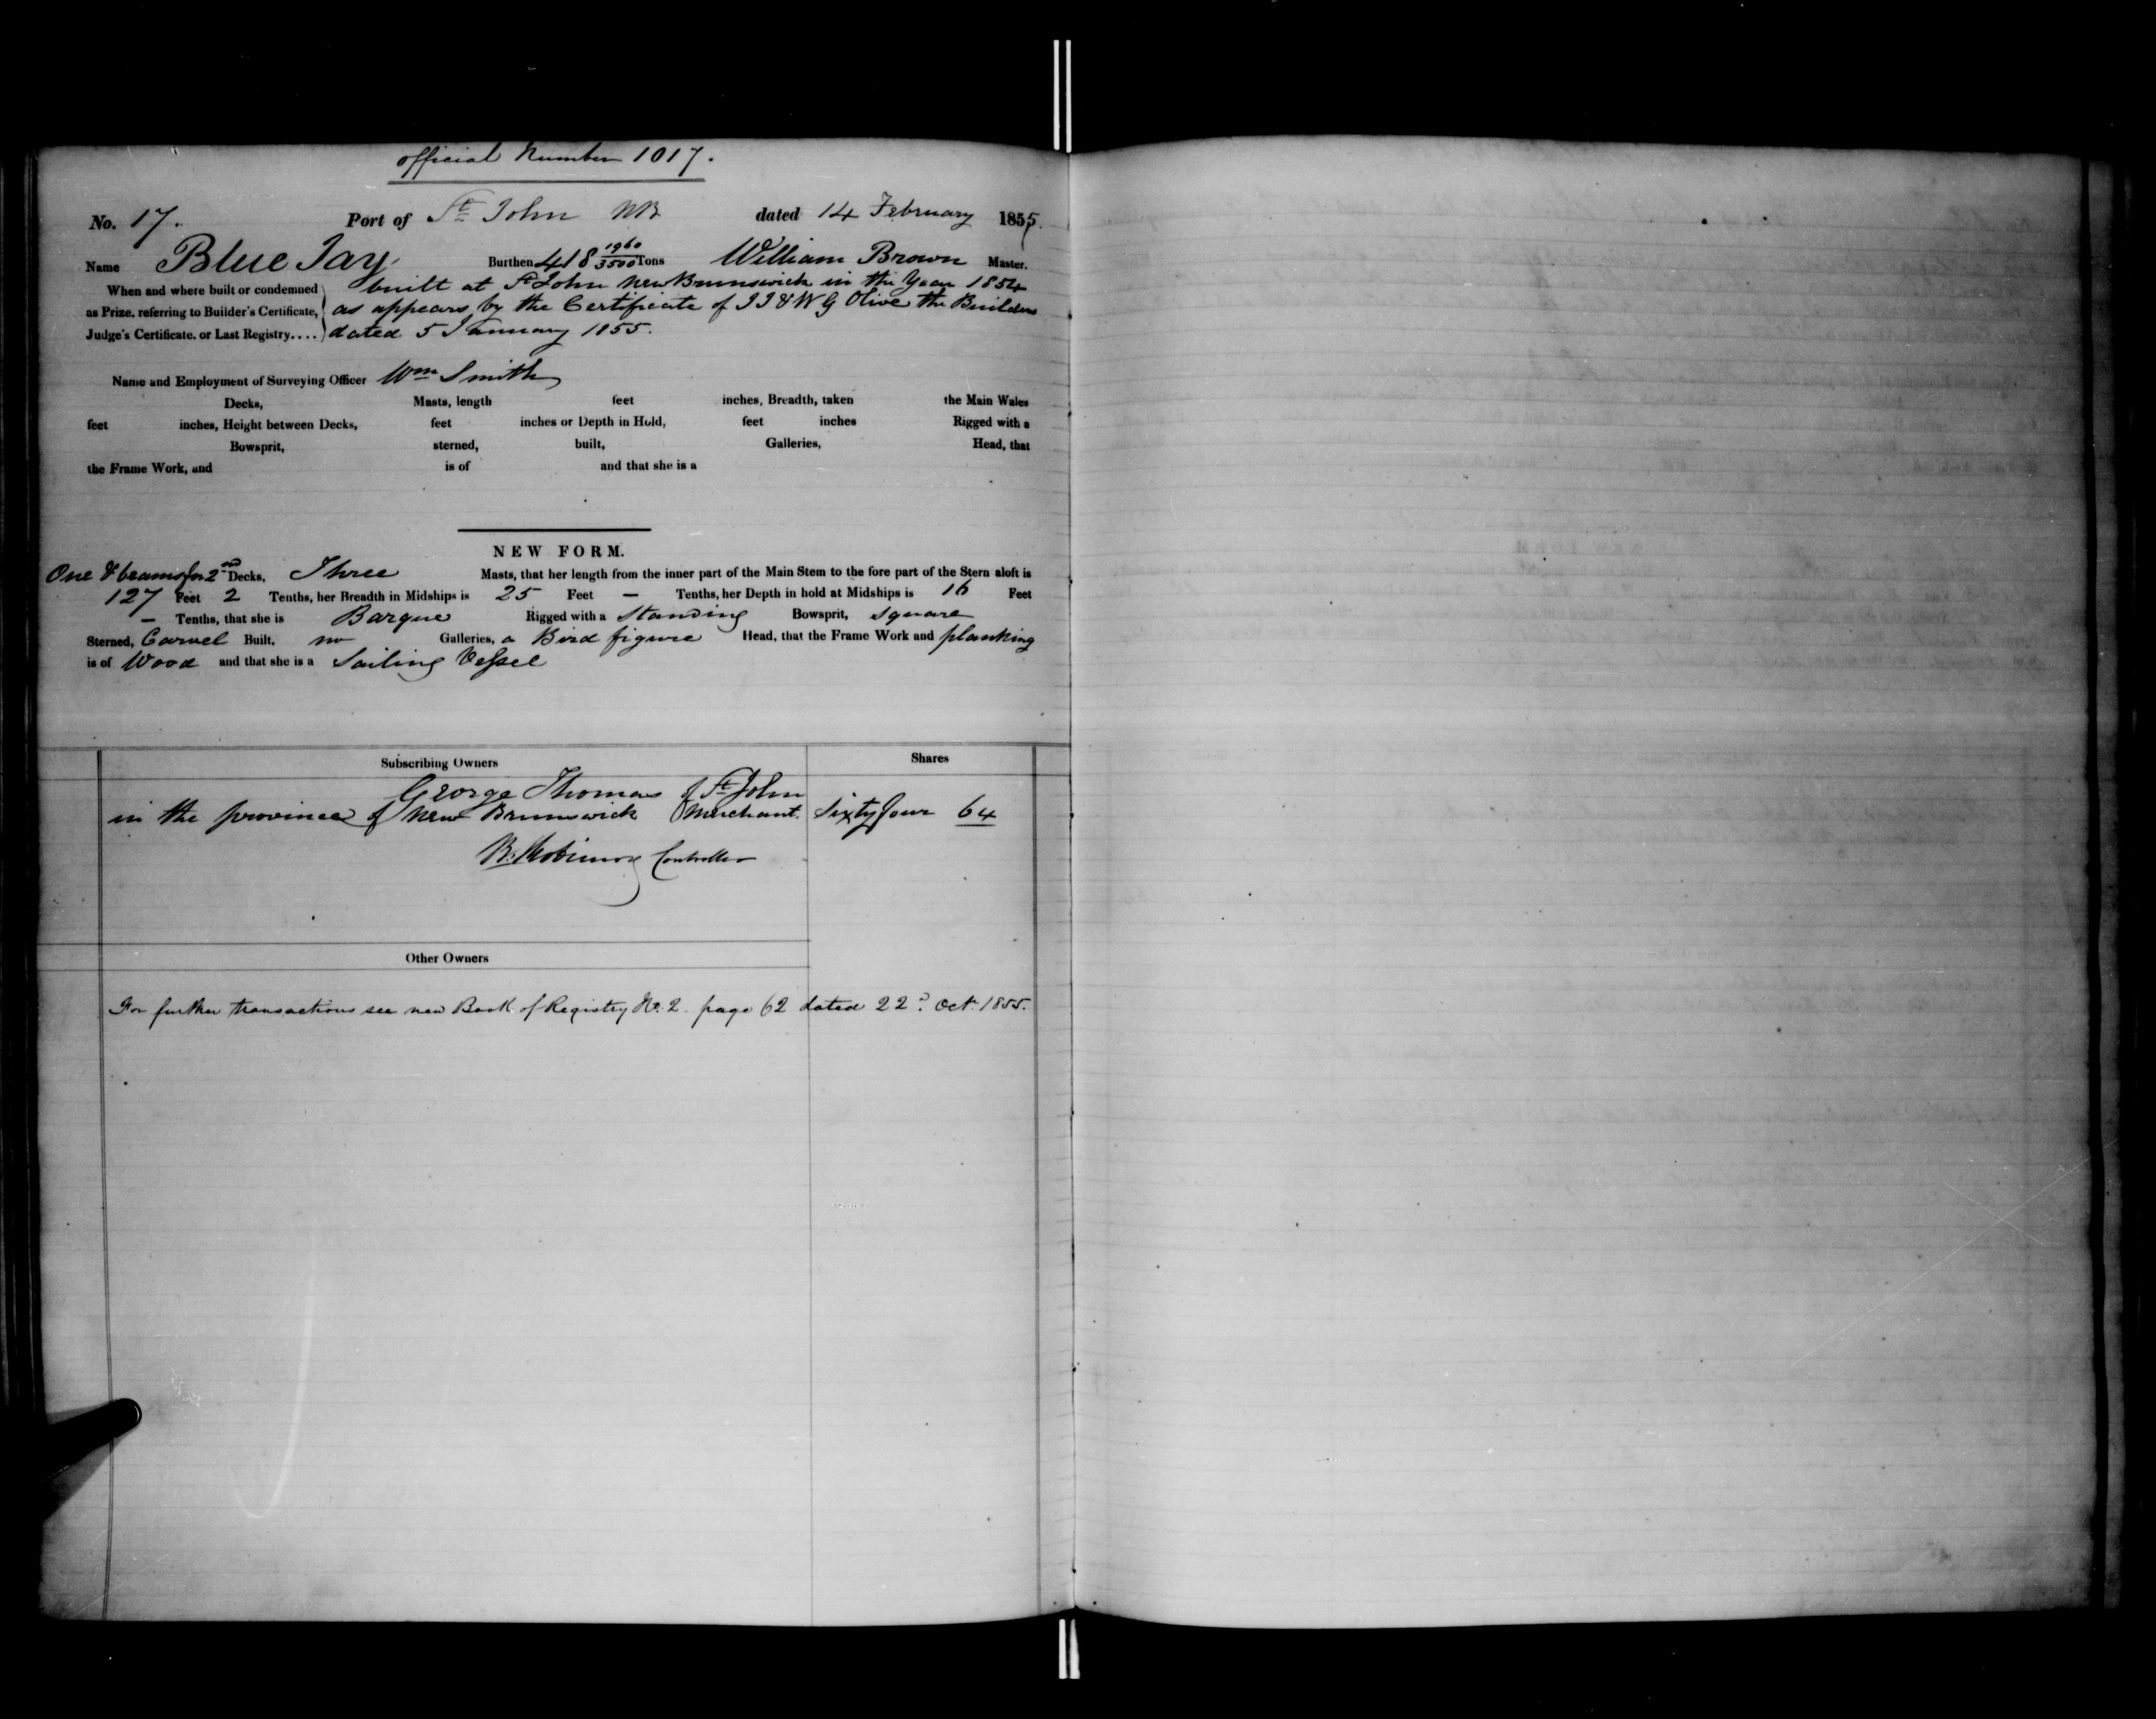 official Number 1017.
No. 17. Port of St John NB dated 14 February 1855.
Name Blue Jay. Burthen 418 1960/3500 Tons William Brown Master.
When and where built or condemned as Prize, referring to Builder's Certificate, Judge's Certificate, or Last Registry....
built at St John New Brunswick in the Year 1854
as appears by the Certificate of J J & W G Olive the Builders
dated 5 January 1855.
Name and Employment of Surveying Officer Wm Smith
Decks, Masts, length feet inches, Breadth, taken the Main Wales
feet inches, Height between Decks, feet inches or Depth in Hold, feet inches Rigged with a
Bowsprit, sterned, built, Galleries, Head, that
the Frame Work, and is of and that she is a
NEW FORM.
One & beams for 2nd Decks, Three Masts, that her length from the inner part of the Main Stem to the fore part of the Stern aloft is
127 Feet 2 Tenths, her Breadth in Midships is 25 Feet — Tenths, her Depth in hold at Midships is 16 Feet
— Tenths, that she is Barque Rigged with a Standing Bowsprit, square
Sterned, Carvel Built, no Galleries, a Bird figure Head, that the Frame Work and planking
is of Wood and that she is a Sailing Vessel
Subscribing Owners Shares
George Thomas of St John
in the province of New Brunswick Merchant. Sixty four 64
B. Robinson Controller
Other Owners
For further transactions see new Book of Registry No. 2 page 62 dated 22d Oct. 1855.